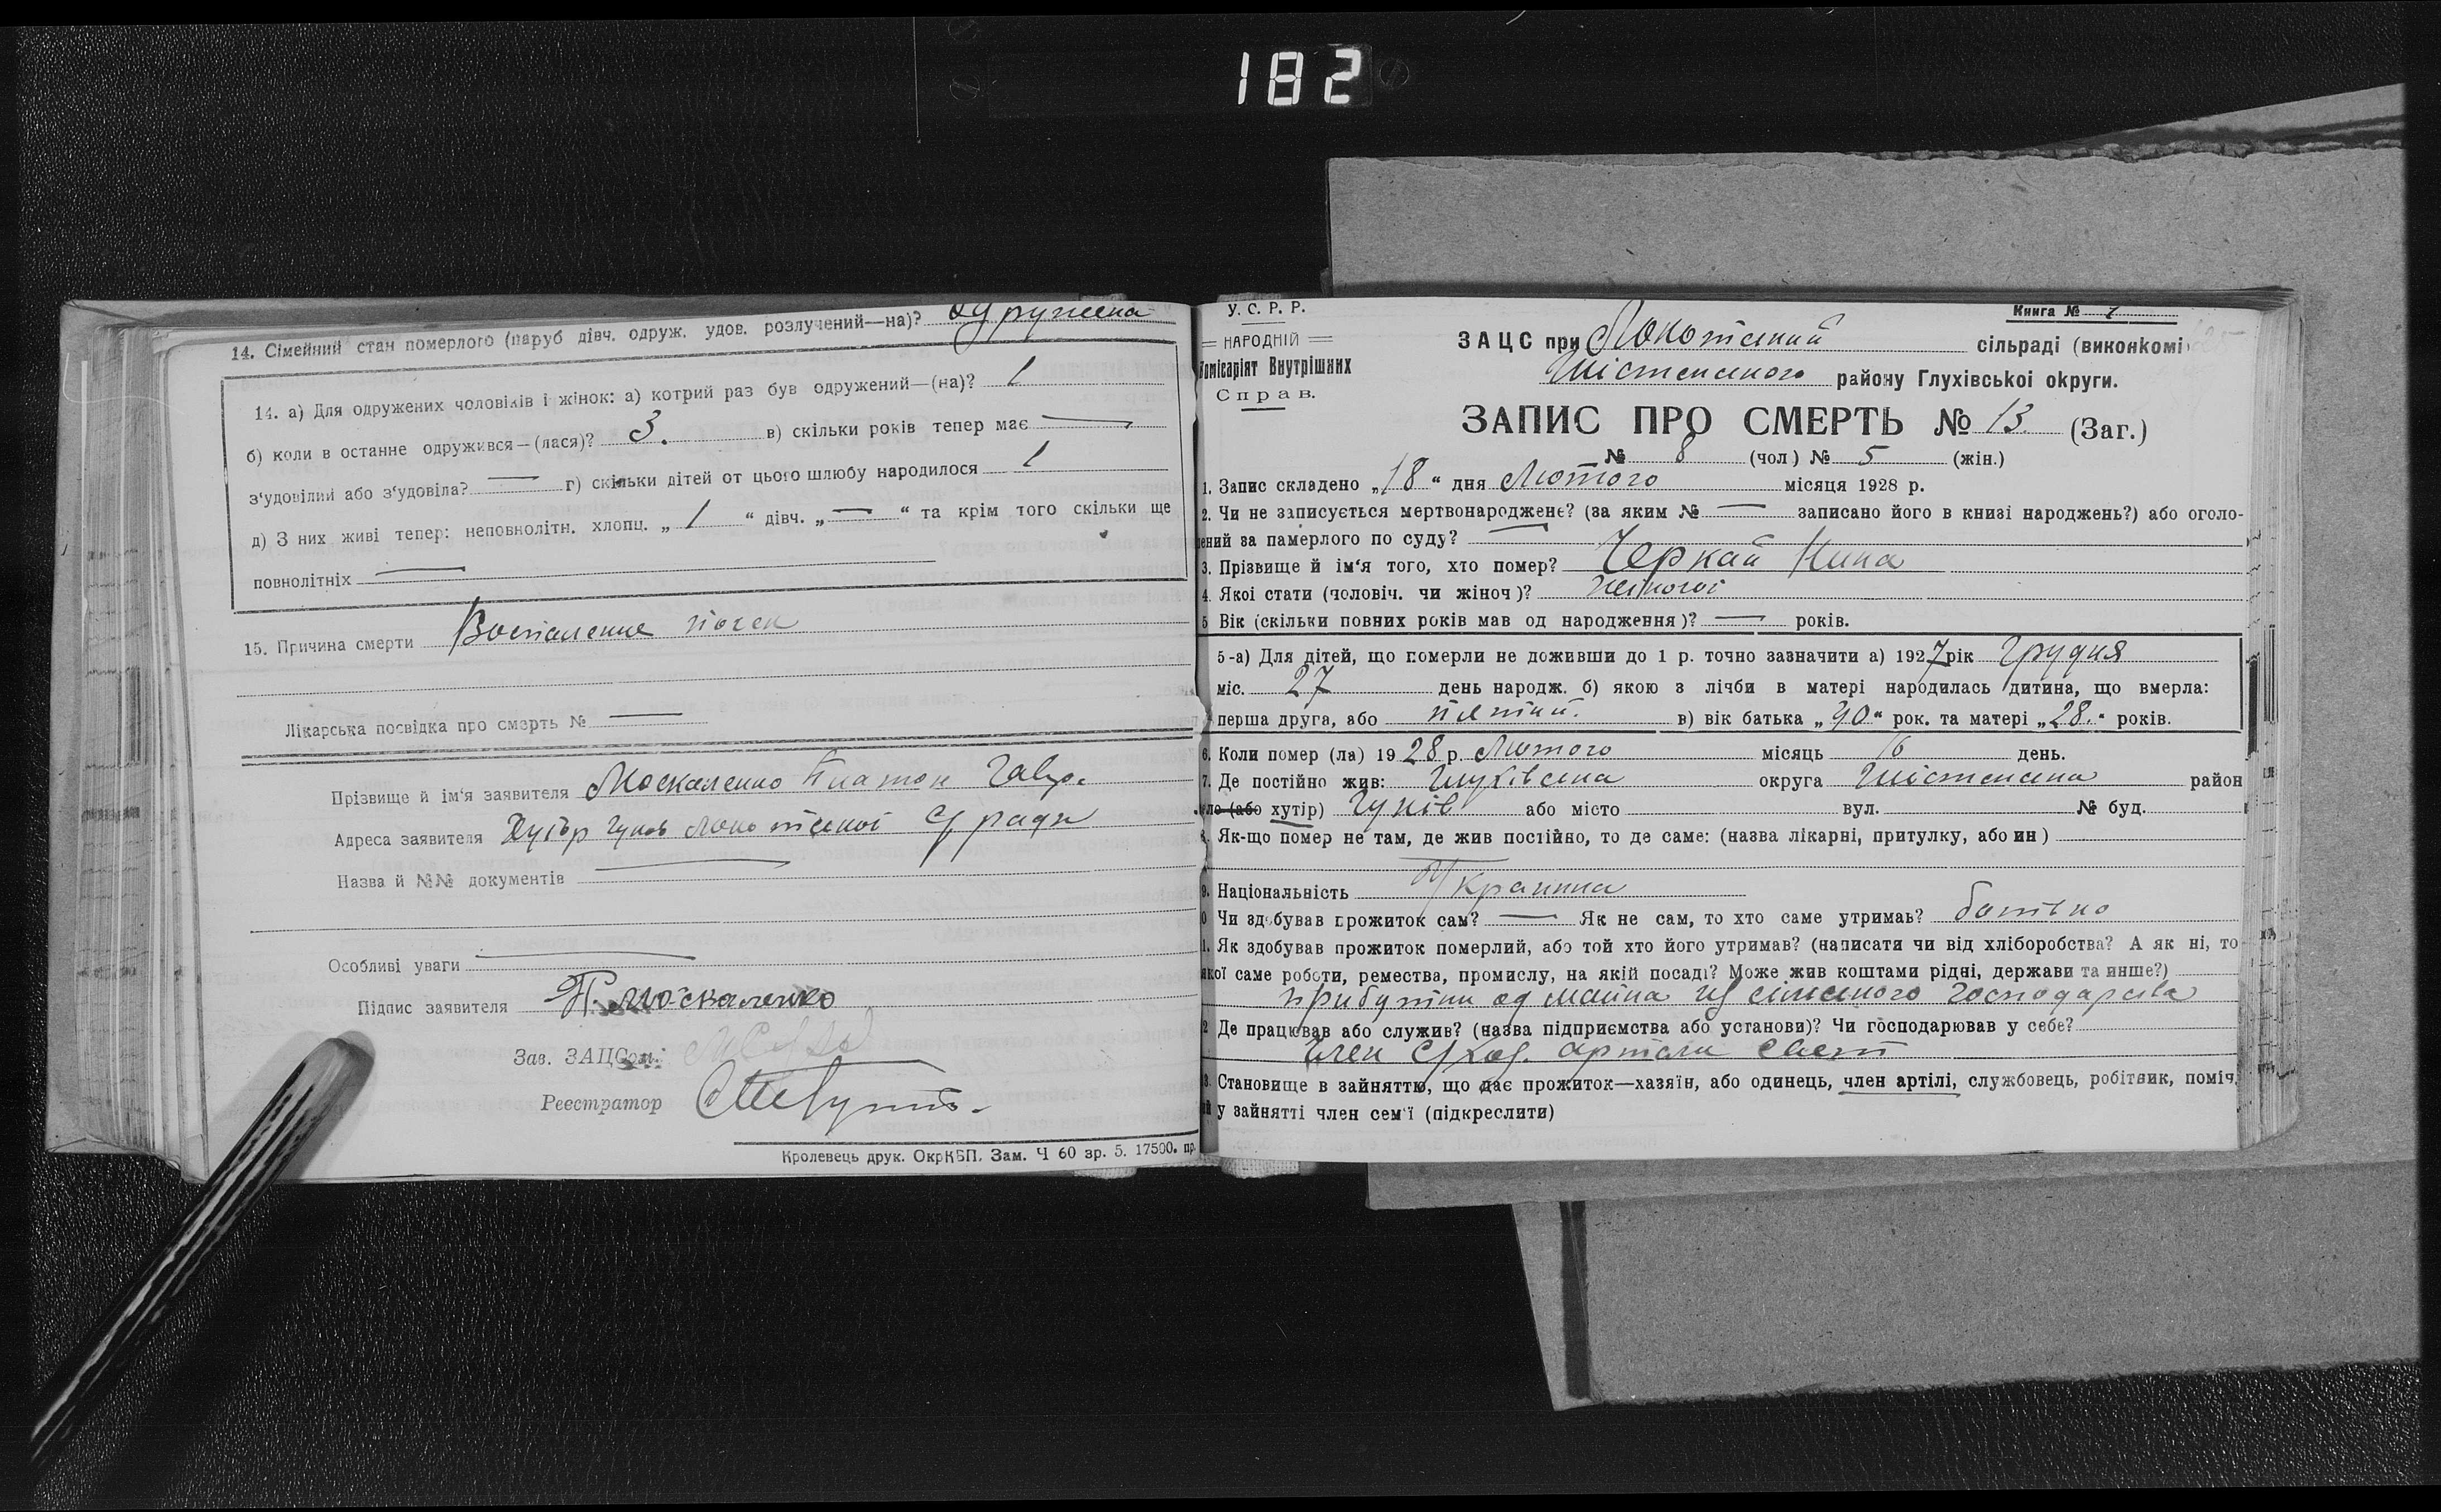 182
14. Сімейний стан померлого (паруб дівч. одруж. удов. розлучений—на)? одружена
14. а) Для одружених чоловіків і жінок: а) котрий раз був одружений—(на)? 1
б) коли в останнє одружився—(лася)? 3. в) скільки років тепер має —
з'удовілий або з'удовіла? — г) скільки дітей от цього шлюбу народилося 1
д) З них живі тепер: неповнолітн. хлопц. „ 1 “ дівч. „ — “ та крім того скільки ще
повнолітніх —
15. Причина смерти Воспаление почек
Лікарська посвідка про смерть № —
Прізвище й ім'я заявителя Москаленко Платон Гавр.
Адреса заявителя Хутір Гуків Локотської С/ради
Назва й №№ документів —
Особливі уваги —
Підпис заявителя П. Москаленко
Зав. ЗАЦСом:
Реєстратор
Кролевець друк. ОкрКВП. Зам. Ч 60 зр. 5. 17500. пр.
У. С. Р. Р.
НАРОДНІЙ
Комісаріят Внутрішних
Справ.
Книга № 1
ЗАЦС при Локотський сільраді (виконкомі
Шістенського району Глухівської округи.
ЗАПИС ПРО СМЕРТЬ № 13 (Заг.)
№ 8 (чол) № 5 (жін.)
1. Запис складено „18“ дня Лютого місяця 1928 р.
2. Чи не записується мертвонароджене? (за яким № — записано його в книзі народжень?) або оголо-
ений за памерлого по суду? —
3. Прізвище й ім'я того, хто помер? Черкай Нина
4. Якої стати (чоловіч. чи жіноч)? жіночої
5 Вік (скільки повних років мав од народження)? — років.
5-а) Для дітей, що померли не доживши до 1 р. точно зазначити а) 1927 рік Грудня
міс. 27 день народж. б) якою з лічби в матері народилась дитина, що вмерла:
перша друга, або пятий. в) вік батька „30“ рок. та матері „28.“ років.
6. Коли помер (ла) 1928 р. Лютого місяць 16 день.
7. Де постійно жив: Глухівська округа Шістенська район
ло (або хутір) Гуків або місто вул. № буд.
8. Як-що помер не там, де жив постійно, то де саме: (назва лікарні, притулку, або ин)
9. Національність Украинка
10 Чи здобував прожиток сам? — Як не сам, то хто саме утримав? батько
11. Як здобував прожиток померлий, або той хто його утримав? (написати чи від хліборобства? А як ні, то
якої саме роботи, ремества, промислу, на якій посаді? Може жив коштами рідні, держави та инше?)
прибутки од майна из сільського господарства
12 Де працював або служив? (назва підприємства або установи)? Чи господарював у себе?
Член С/Хоз. артели Свет
13. Становище в зайняттю, що дає прожиток—хазяїн, або одинець, член артілі, службовець, робітвик, поміч.
ий у зайнятті член сем'ї (підкреслити)